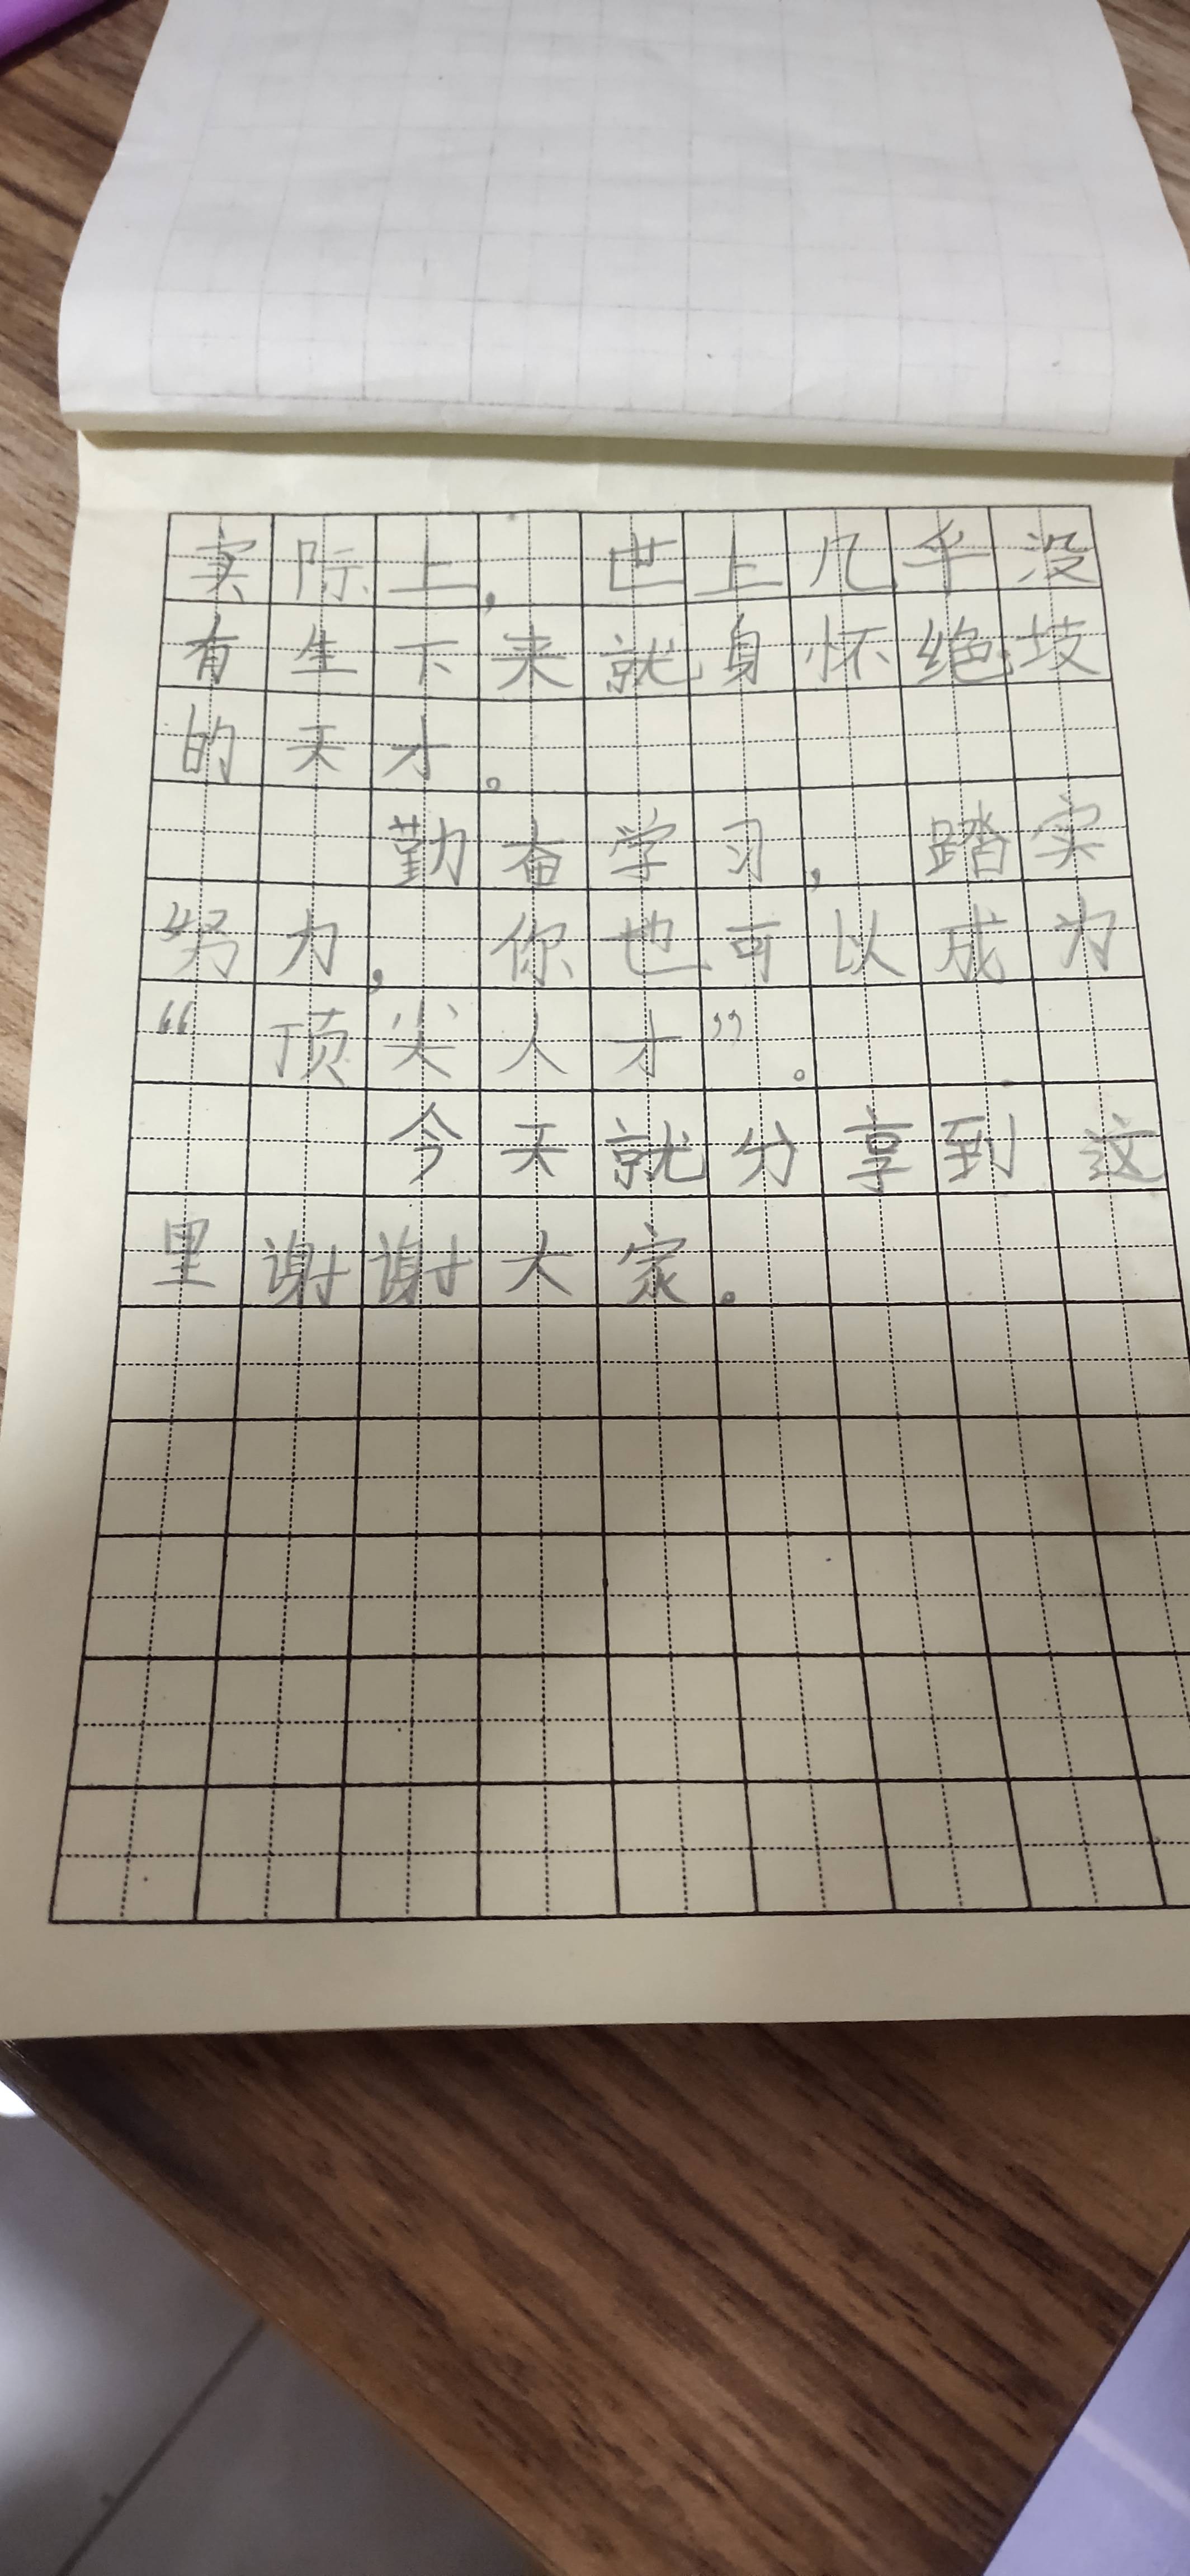 实际上，世上几乎没
有生下来就身怀绝技
的天才。
勤奋学习，踏实
努力，你也可以成为
“顶尖人才”。
今天就分享到这
里谢谢大家。